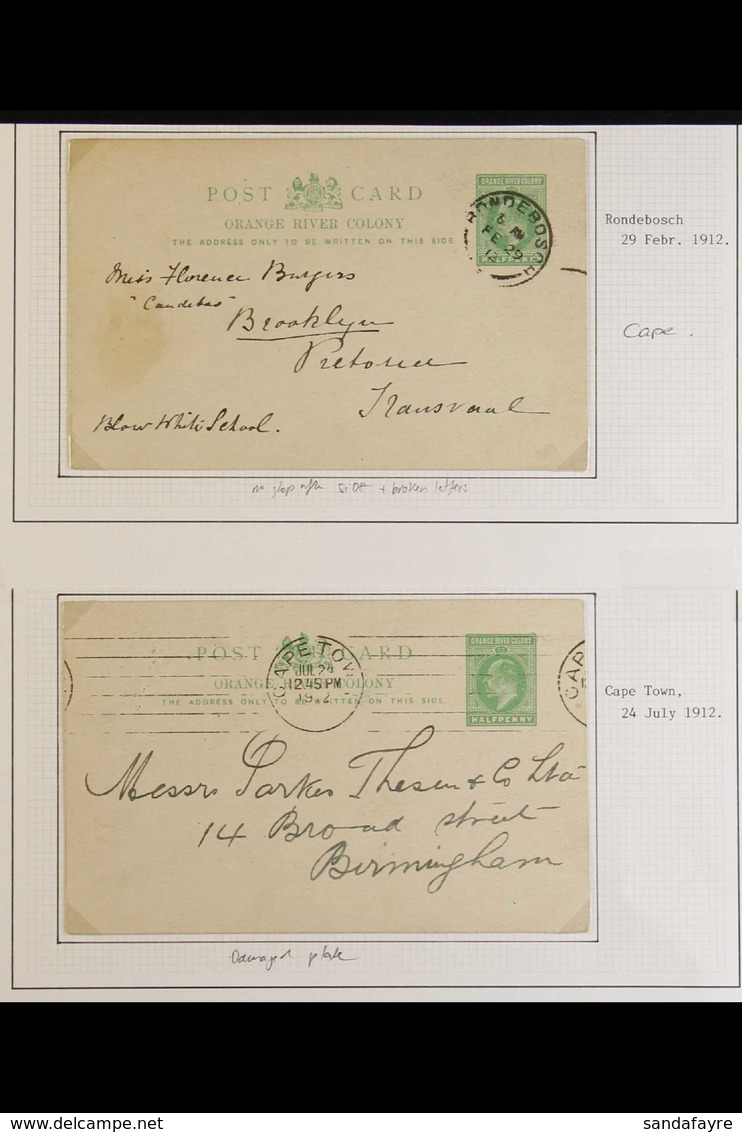 POST CARD
ORANGE RIVER COLONY
THE ADDRESS ONLY TO BE WRITTEN ON THIS SIDE
ORANGE RIVER COLONY
HALFPENNY
RONDEBOSCH
6 AM
FE 29
12
Miss Florence Burgers
"Candebas"
Brooklyn
Pretoria
Transvaal
Blow White School.
Rondebosch
29 Febr. 1912.
Cape.
no stop after SIDE + broken letters
POST CARD
ORANGE RIVER COLONY
THE ADDRESS ONLY TO BE WRITTEN ON THIS SIDE.
ORANGE RIVER COLONY
HALFPENNY
CAPE TOW
JUL 24
12.45 PM
1912
CAP
Messrs Parkes Thesen & Co Ltd
14 Broad street
Birmingham
Cape Town,
24 July 1912.
Damaged plate
sandafayre